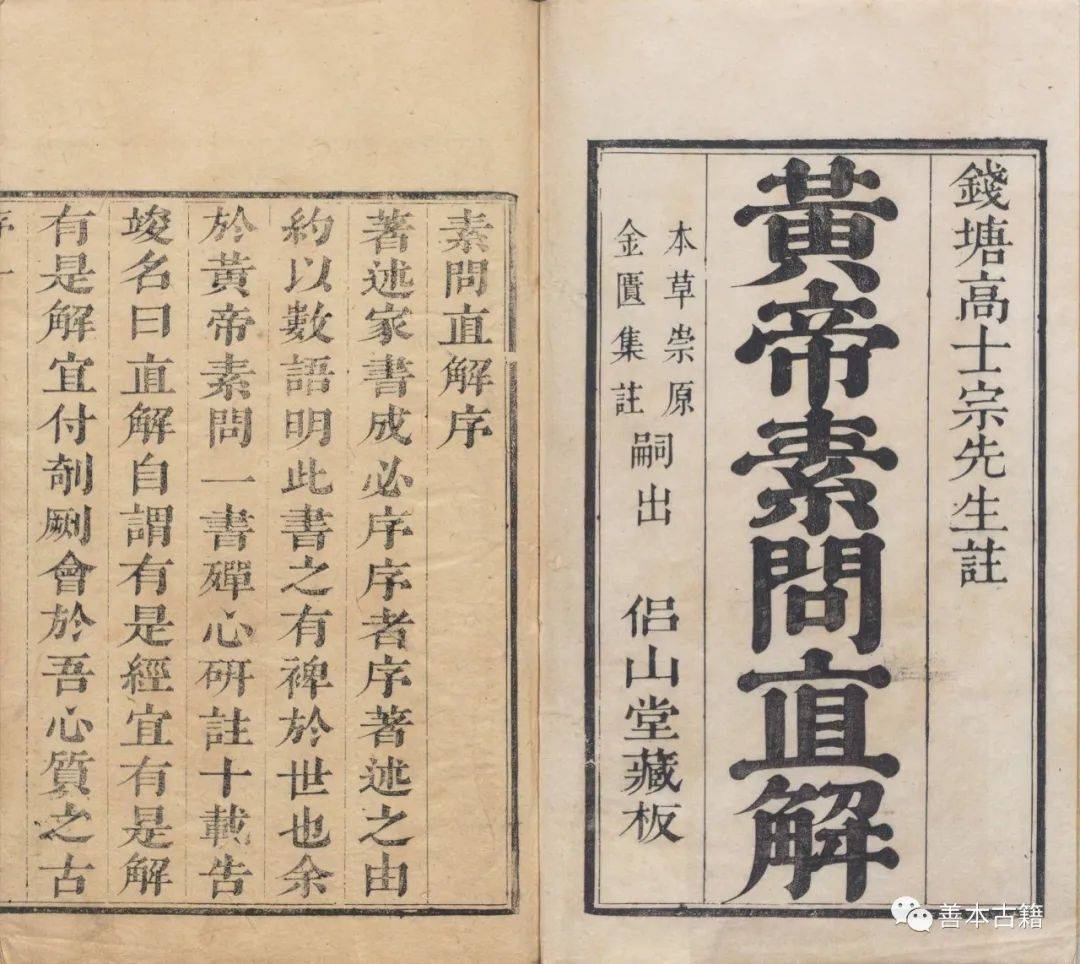 錢塘高士宗先生註
黃帝素問直解
本草崇原
金匱集註
嗣出
侶山堂藏板
素問直解序
著述家書成必序序者序著述之由
約以數語明此書之有裨於世也余
於黃帝素問一書殫心硏註十載告
竣名曰直解自謂有是經宜有是解
有是解宜付剞劂會於吾心質之古
序一
善本古籍